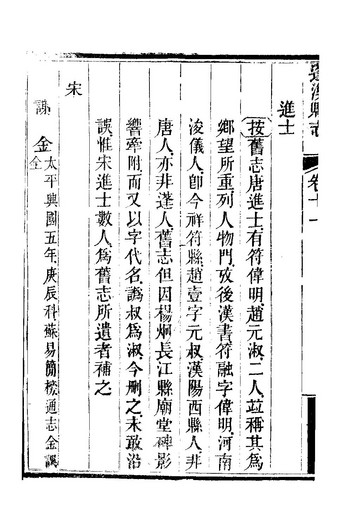 蓬溪縣志
卷十一
進士
按舊志唐進士有符偉明趙元淑二人並稱其為
鄉望所重列人物門攷後漢書符融字偉明河南
浚儀人卽今祥符縣趙壹字元叔漢陽西縣人非
唐人亦非蓬人舊志但因楊炯長江縣廟堂碑影
響牽附而又以字代名譌叔為淑今刪之未敢沿
誤惟宋進士數人為舊志所遺者補之
宋
謝金
全
太平興國五年庚辰科蘇易簡榜通志金誤